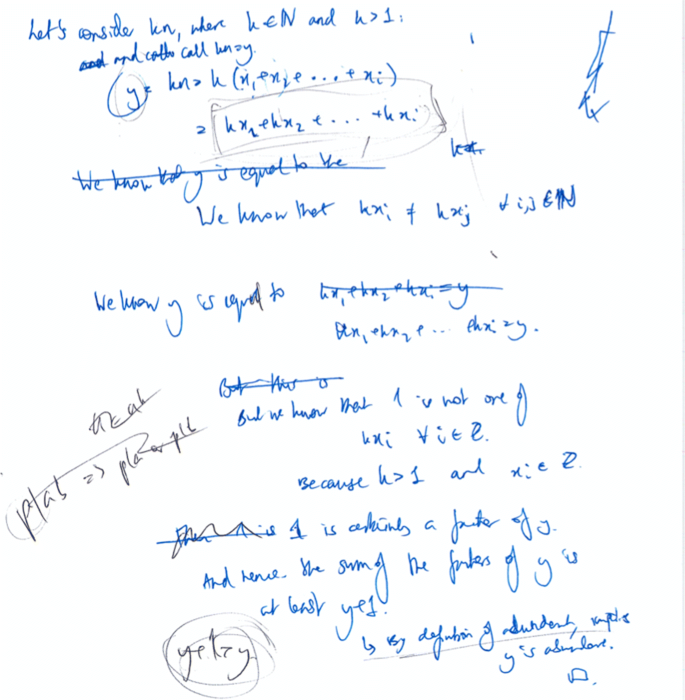 Let's consider kn, where k ∈ ℕ and k > 1.
and call kn = y.
y = kn = k(x₁ + x₂ + ... + xᵢ)
= kx₁ + kx₂ + ... + kxᵢ
We know that y is equal to the
We know that kxᵢ ≠ kxⱼ ∀ i,j ∈ ℕ
We know y is equal to kx₁ + kx₂ + kxᵢ = y
kx₁ + kx₂ + ... + kxᵢ = y.
But this is
But we know that 1 is not one of
kxᵢ ∀ i ∈ ℤ.
Because k > 1 and xᵢ ∈ ℤ.
p|ab => p|a or p|b
is 1 is certainly a factor of y.
And hence the sum of the factors of y is
at least y+1.
↳ By definition of abundant, implies
y is abundant.
□
y+1>y